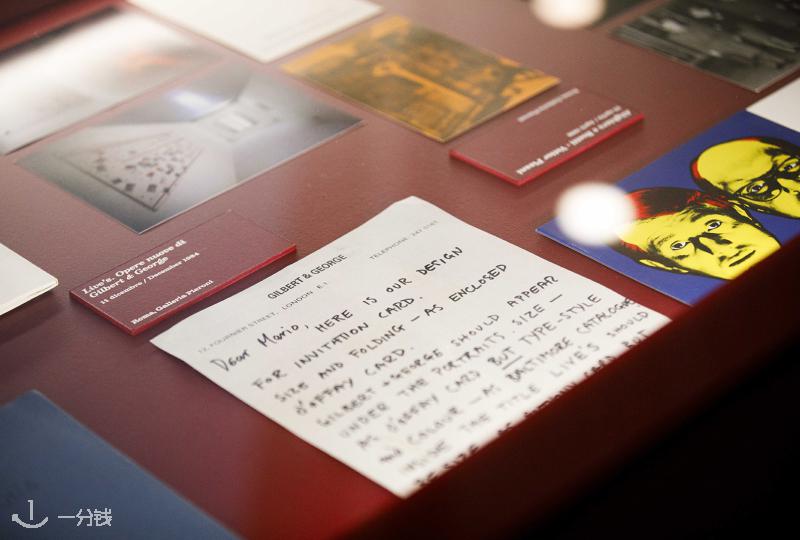 Live's. Opere nuove di
Gilbert & George
11 dicembre / December 1984
Roma, Galleria Pieroni
GILBERT & GEORGE
12, FOURNIER STREET, LONDON E.1.
TELEPHONE 247 0161
Dear Mario, HERE IS OUR DESIGN
FOR INVITATION CARD.
SIZE AND FOLDING — AS ENCLOSED
d'OFFAY CARD.
GILBERT + GEORGE SHOULD APPEAR
UNDER THE PORTRAITS. SIZE —
AS d'OFFAY CARD BUT TYPE-STYLE
AND COLOUR — AS BALTIMORE CATALOGUE
THE TITLE LIVE'S SHOULD
BUT
一分钱